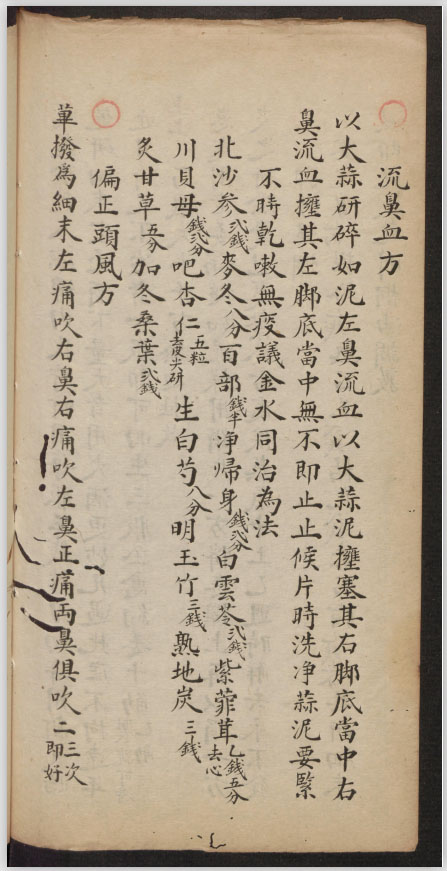 流鼻血方
以大蒜研碎如泥左鼻流血以大蒜泥擁塞其右脚底當中右
鼻流血擁其左脚底當中無不即止止候片時洗净蒜泥要緊
不時乾嗽無疫議金水同治為法
北沙参弍錢麥冬八分百部錢半净歸身錢弍分白雲苓弍錢紫菀茸乙錢五分去心
川貝母錢弍分吧杏仁五粒去皮尖研生白芍八分明玉竹三錢熟地炭三錢
炙甘草五分加冬桑葉弍錢
偏正頭風方
蓽撥爲細末左痛吹右鼻右痛吹左鼻正痛両鼻俱吹二三次即好